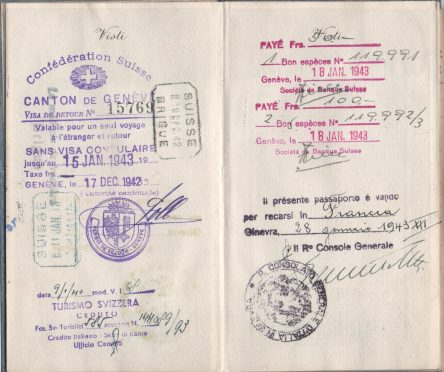 Visti
Confédération Suisse
CANTON DE GENÈVE
VISA DE RETOUR No 15769
Valable pour un seul voyage
à l'étranger et retour
SANS VISA CONSULAIRE
jusqu'au 15 JAN. 1943 19
Taxe frs
GENÈVE, le 17 DEC. 1942
(Autorité cantonale)
SUISSE
BRIGUE
SUISSE
data 9/1/43 mod. V
TURISMO SVIZZERA
CEDUTO
Fcs. Sv. Turistici 585 assegno N.
Credito Italiano - Sede di Roma
Ufficio Cambio
Visti
PAYÉ Frs.
1 Bon espèces No 119.991
Genève, le 18 JAN. 1943
Société de Banque Suisse
100.-
PAYÉ Frs.
2 Bon espèces No 119.992/3
Genève, le 18 JAN. 1943
Société de Banque Suisse
Il présente passaporto è valido
per recarsi in Francia
Ginevra, 28 gennaio 1943 XXI
Il Ro Console Generale
R. CONSOLATO GENERALE D'ITALIA IN GINEVRA